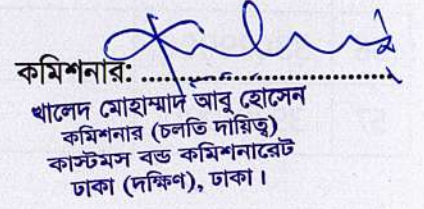 কমিশনার: ........................................
খালেদ মোহাম্মাদ আবু হোসেন
কমিশনার (চলতি দায়িত্ব)
কাস্টমস বন্ড কমিশনারেট
ঢাকা (দক্ষিণ), ঢাকা।